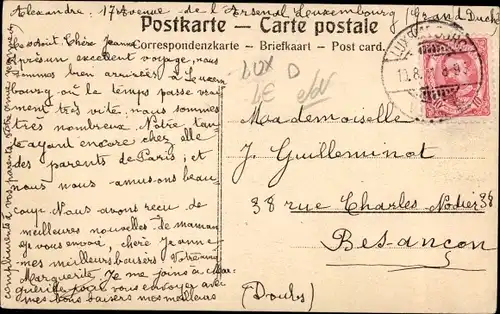 Alexandre. 17 Avenue de l'Arsenal Luxembourg (Grand Duché)
Postkarte — Carte postale
Correspondenzkarte — Briefkaart — Post card.
Ce soir. Chère Jeanne
Après un excellent voyage, nous
sommes bien arrivées à Luxem
bourg où le temps passe vrai
ment très vite, nous sommes
très nombreux. Notre tan-
te ayant encore chez elle
des parents de Paris; et
nous nous amusons beau-
coup. Nous avons reçu de
meilleures nouvelles de maman
Je vous envoie, chère Jeanne
mes meilleurs baisers
Marguerite. Je me joins à Mar-
guerite pour vous envoyer avec
mes bons baisers mes meilleurs
compliments à vos parents
LUX D
LE
LUXEMBOURG
8-9
Mademoiselle
J. Guilleminot
38 rue Charles Nodier 38
Besançon
(Doubs)